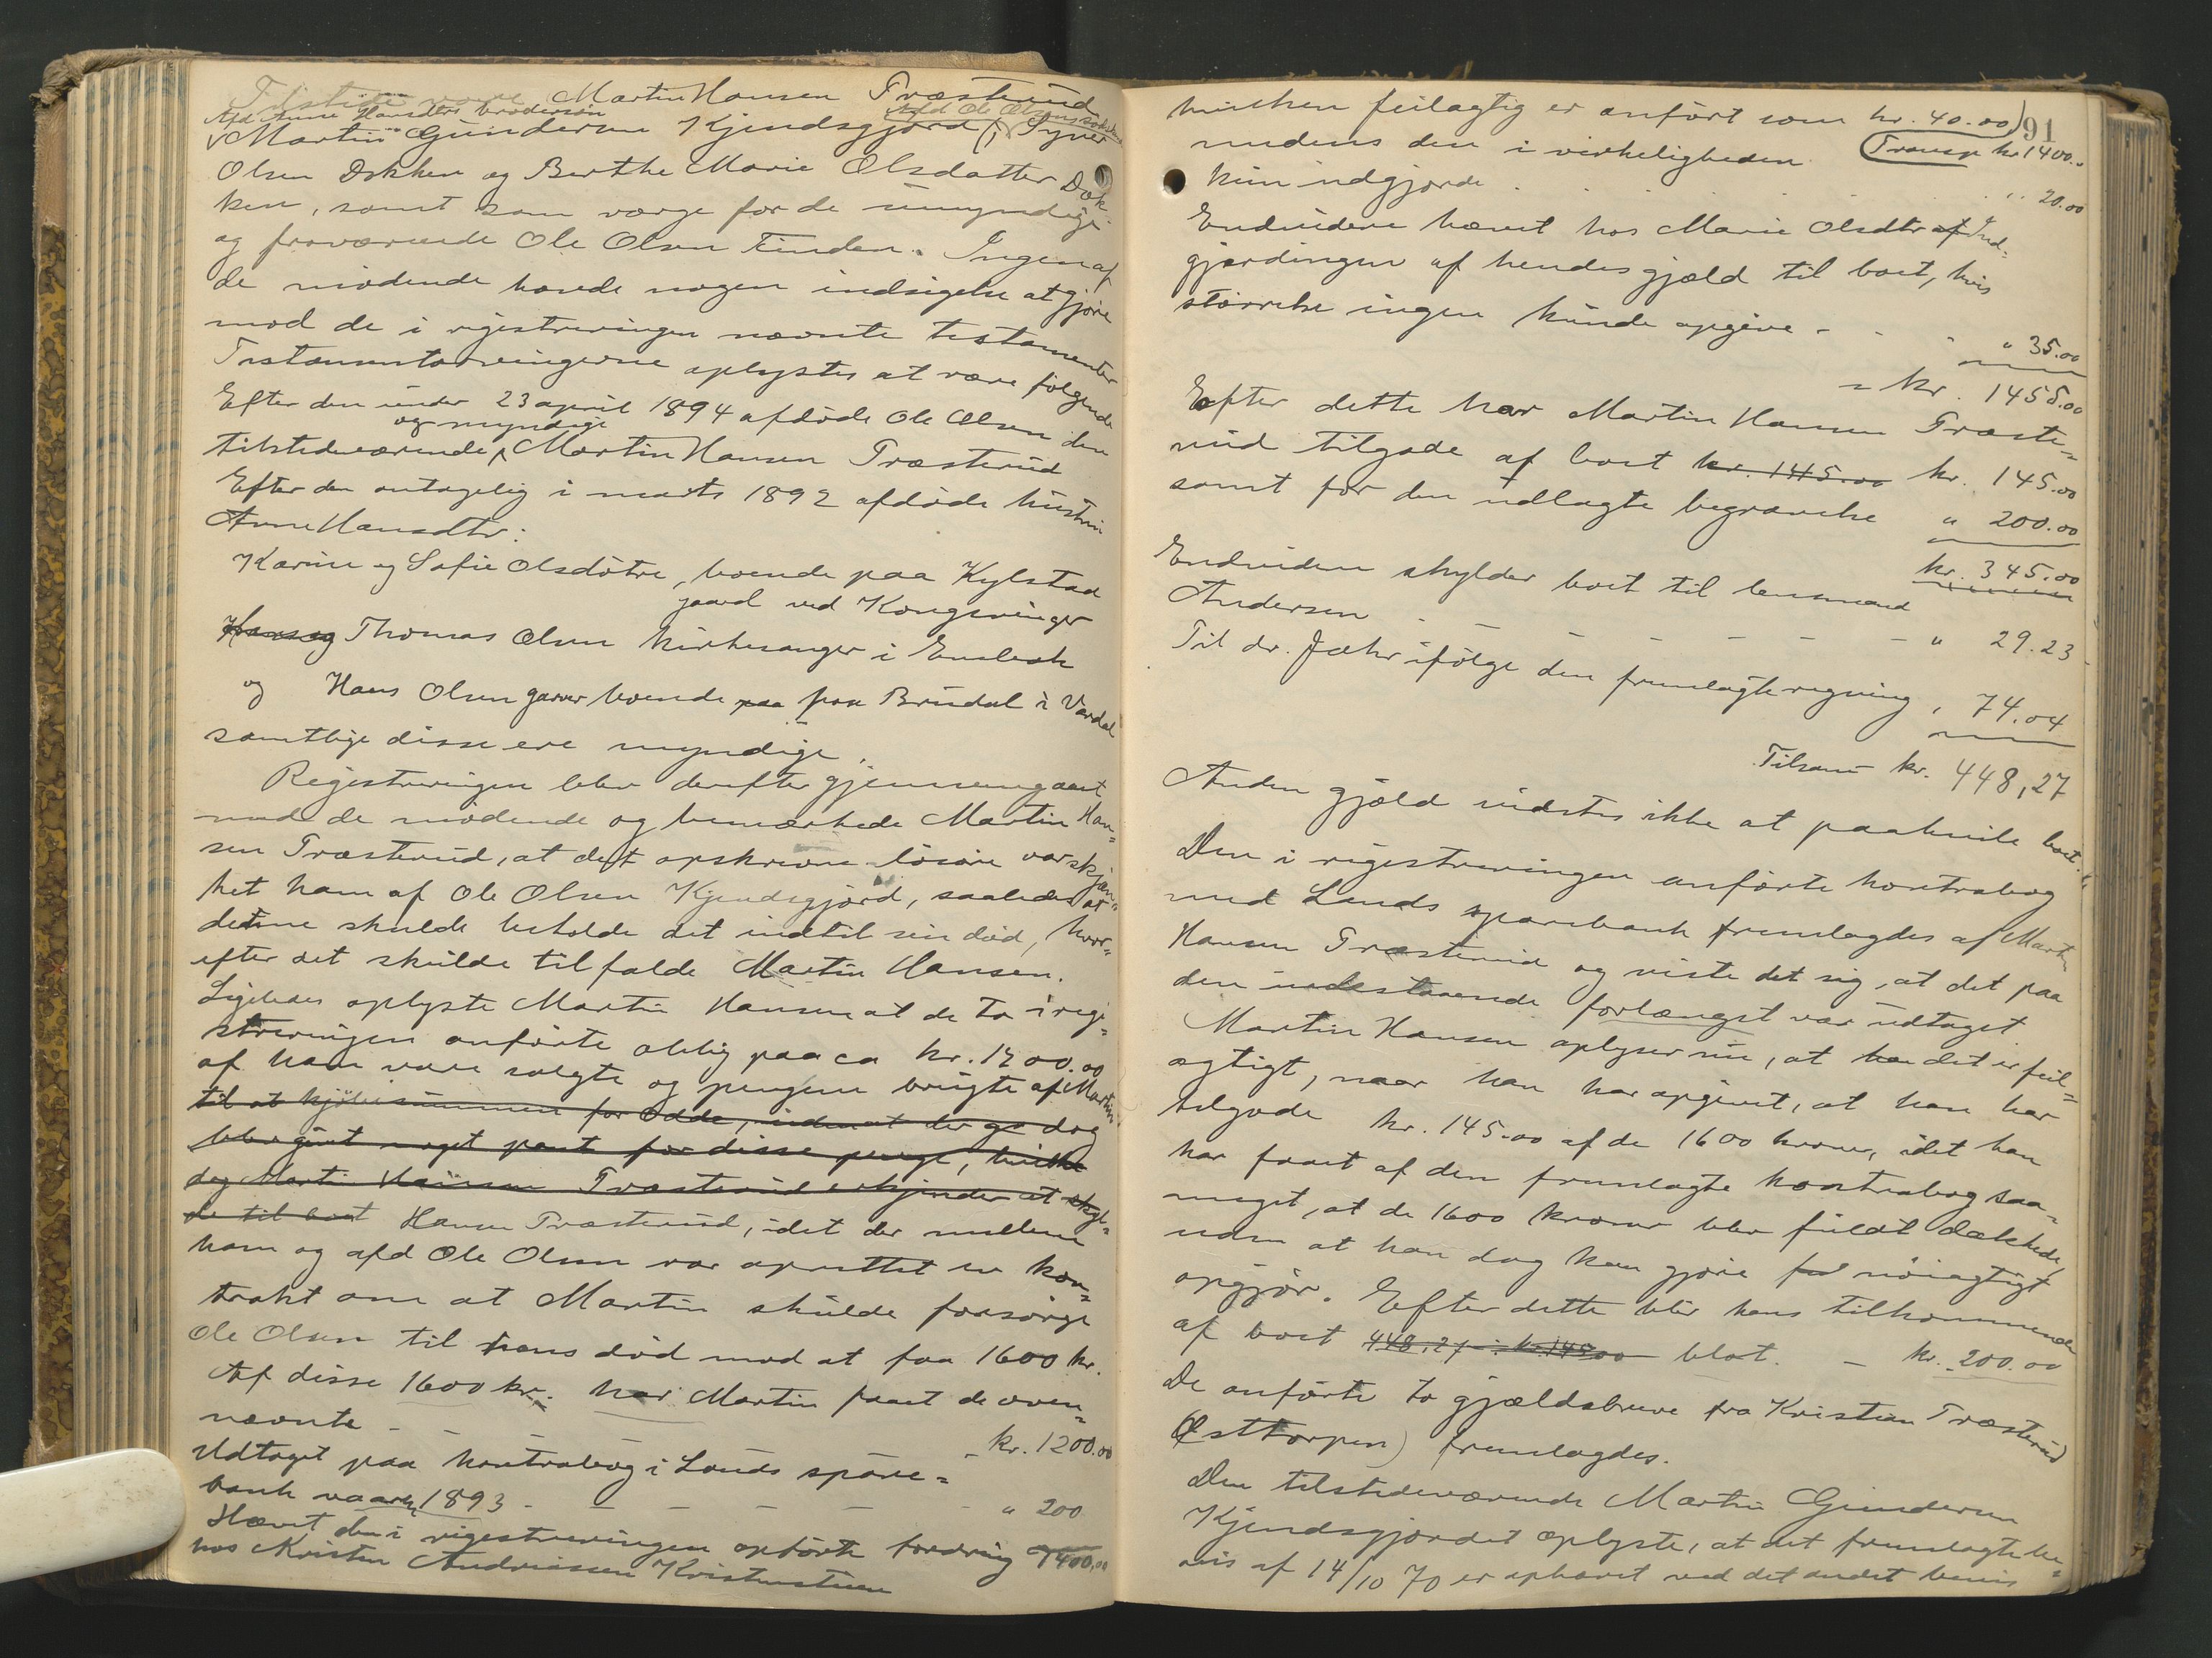 Tilstede vare Martin Hansen Træsterud
Afd Anne Hansdtrs brodersøn
Afd Ole Olsens
Martin Gundersen Kjendsgjord (i) Syver
Olsen Dokken og Berthe Marie Olsdatter Dok-
ken, samt som værge for de umyndige
og fraværende Ole Olsen Linden. Ingen af
de mødende havde nogen indsigelse at gjøre
mod de i registreringen nævnte testamenter
Testamentarvingerne oplystes at være følgende
Efter den under 23 april 1894 afdøde Ole Olsen den
og myndige
tilstedeværende Martin Hansen Træsterud
Efter den antagelig i marts 1892 afdøde hustru
Anne Hansdtr:
Karine og Sofie Olsdøtre, boende paa Kylstad
gaard ved Kongsvinger
Hans og Thomas Olsen kirkesanger i Enebak
og Hans Olsen garver boende paa paa Brudal i Vardal
samtlige disse ere myndige.
Registreringen blev derefter gjennemgaaet
med de mødende og bemærkede Martin Han=
sen Træsterud, at det opskrevne løsøre var skjæn=
ket ham af Ole Olsen Kjendsgjord, saaledes at
denne skulde beholde det indtil sin død, hvor=
efter det skulde tilfalde Martin Hansen.
Ligeledes oplyste Martin Hansen at de to i regi=
streringen anførte oblig paa ca kr. 1200.00
af ham vare solgte og pengene brugte af Martin
til at kjøbesummen for Odde, uden at der dog
blev givet noget pant for disse penge, hvilke
dog Martin Hansen Træsterud erkjender at skyl=
de til boet Hansen Træsterud, idet der mellem
ham og afd Ole Olsen var oprettet en kon=
trakt om at Martin skulde forsørge
Ole Olsen til hans død mod at faa 1600 kr.
Af disse 1600 kr. har Martin faaet de oven=
nævnte - - - - kr. 1200.00
Udtaget paa kontrabog i Lands spare=
bank vaaren 1893 - - - - - " 200
Hævet den i registreringen opførte fordring 1400,00
hos Kristen Andreassen Kristenstuen
91
hvilken feilagtig er anført som kr. 40.00)
Transp kr 1400.
medens den i virkeligheden
kun udgjorde . . . . . . 20.00
Endvidere hævet hos Marie Olsdtr af Ind-
gjærdingen af hendes gjæld til boet, hvis
størrelse ingen kunde opgive - - - " 35.00
= kr. 1455.00
Efter dette har Martin Hansen Træste=
rud tilgode af boet kr. 145.00 kr. 145.00
samt for den udlagte begravelse " 200.00
kr. 345.00
Endvidere skylder boet til lensmand
Andersen - - - - - - " 29.23
Til dr. Jæhr ifølge den fremlagte regning , 74.04
Tilsam kr. 448,27
Anden gjæld vidstes ikke at paahvile boet.
Den i registreringen anførte kontrabog
med Lands sparebank fremlagdes af Martin
Hansen Træsterud og viste det sig, at det paa
den indestaaende forlængst var udtaget
Martin Hansen oplyser nu, at han det er feil=
agtigt, naar han har opgivet, at han har
tilgode kr. 145.00 af de 1600 kroner, idet han
har faaet af den fremlagte kontrabog saa=
meget, at de 1600 kroner blev fuldt dækkede,
uden at han dog kan gjøre nøiagtigt
opgjør. Efter dette blir hans tilkommende
af boet 448,27 ÷ kr. 145.00 blot. - kr. 200.00
De anførte to gjældsbreve fra Kristian Træsterud
(Østtorpen) fremlagdes.
Den tilstedeværende Martin Gundersen
Kjendsgjordet oplyste, at det fremlagte be=
vis af 14/10 70 er ophævet ved det andet bevis